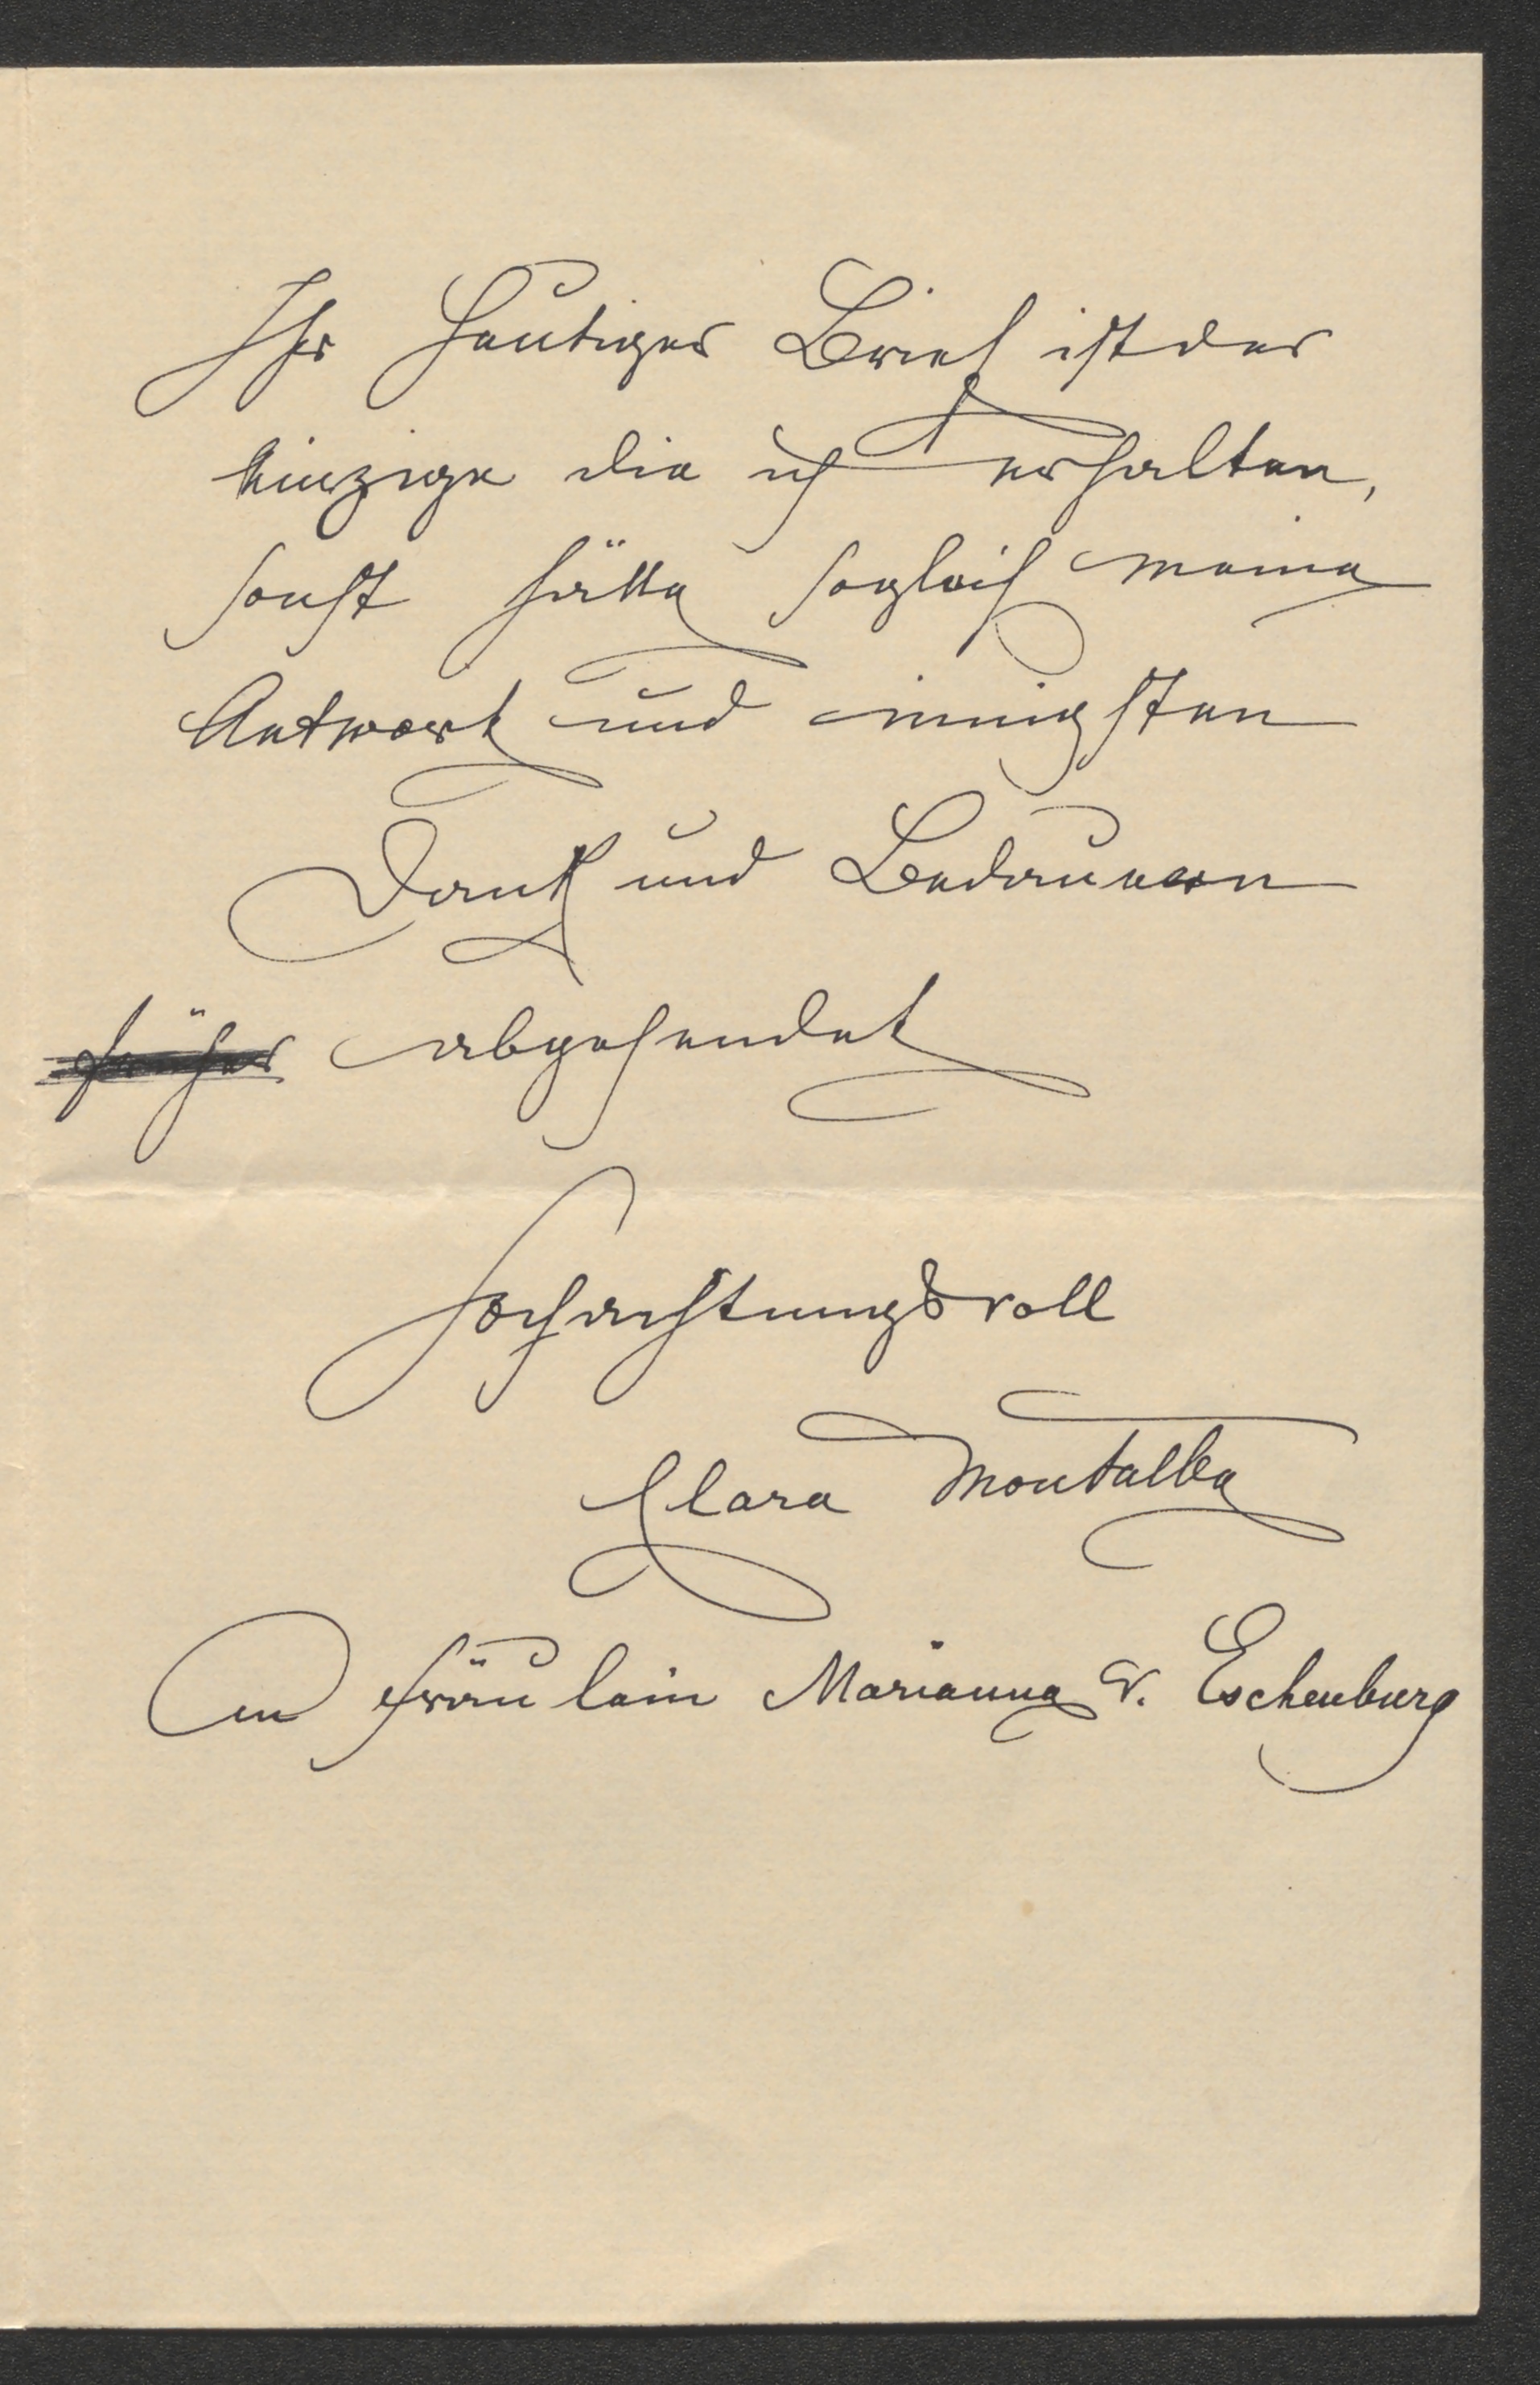 Ihr heutiger Brief ist der
einzige die ich erhalten,
sonst hätte sogleich meine
Antwort und innigsten
Dank und Bedauern
früher abgesendet
Hochachtungsvoll
Clara Montalba
An Fräulein Marianna v. Eschenburg